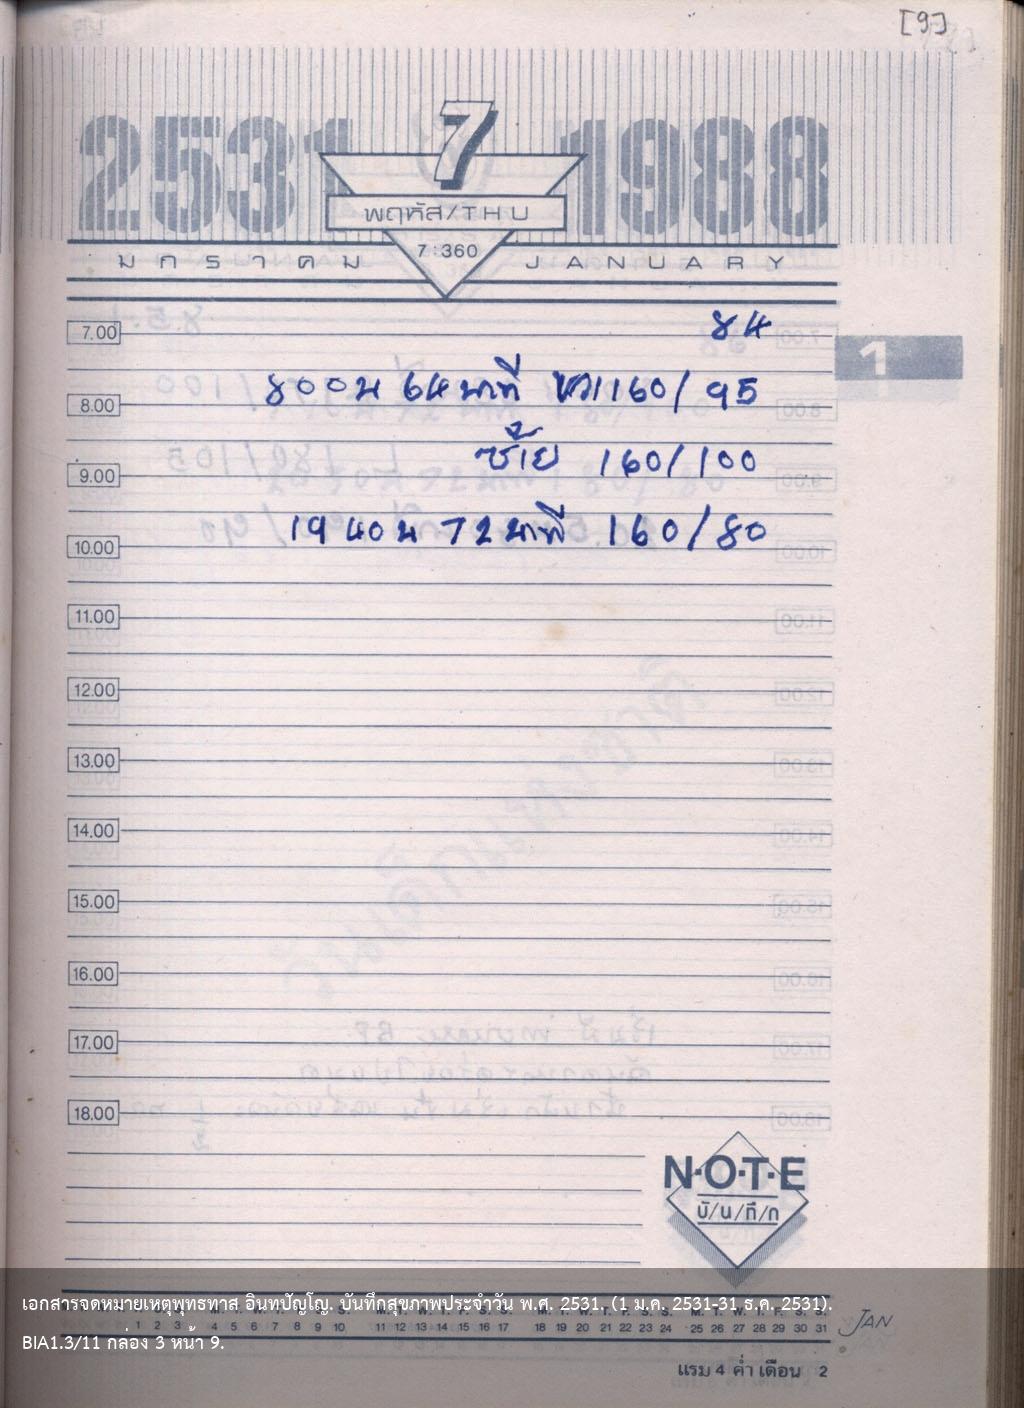 [9]
2531 7 1988
พฤหัส/THU
7:360
มกราคม JANUARY
7.00 84
1
800น 64 นาที ขวา 160/95
8.00
ซ้าย 160/100
9.00
1940น 72 นาที 160/80
10.00
11.00
12.00
13.00
14.00
15.00
16.00
17.00
18.00
N·O·T·E
บั/น/ทึ/ก
เอกสารจดหมายเหตุพุทธทาส อินทปัญโญ. บันทึกสุขภาพประจำวัน พ.ศ. 2531. (1 ม.ค. 2531-31 ธ.ค. 2531).
1 2 3 4 5 6 7 8 9 10 11 12 13 14 15 16 17 18 19 20 21 22 23 24 25 26 27 28 29 30 31 JAN
BIA1.3/11 กล่อง 3 หน้า 9.
แรม 4 ค่ำ เดือน 2